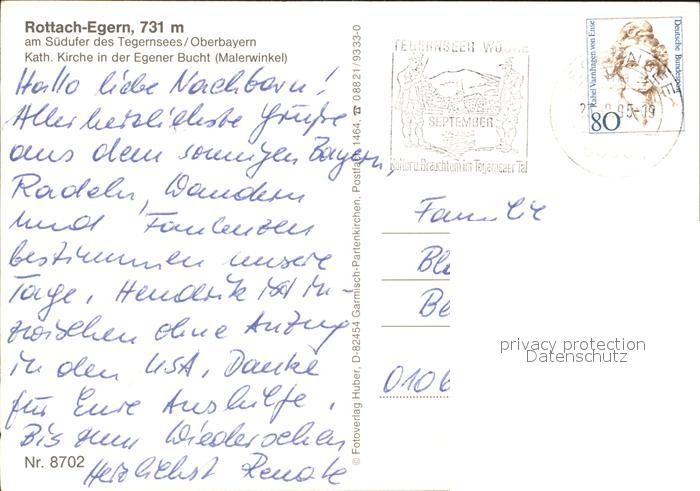 Rottach-Egern, 731 m
am Südufer des Tegernsees/Oberbayern
Kath. Kirche in der Egener Bucht (Malerwinkel)
Hallo liebe Nachbarn!
Allerherzlichste Grüße
aus dem sonnigen Bayern,
Radeln, Wandern
und Faulenzen
bestimmen unsere
Tage, Hendrik ist in-
zwischen ohne Anzug
in den USA. Danke
für Eure Aushilfe.
Bis zum Wiedersehen
Herzlichst Renate
Nr. 8702
© Fotoverlag Huber, D-82454 Garmisch-Partenkirchen, Postfach 1464, ☎ 08821/9333-0
TEGERNSEER WOCHE
SEPTEMBER
Kultur u. Brauchtum im Tegernseer Tal
Deutsche Bundespost
Rahel Varnhagen von Ense
80
95-19
Familie
Ble
Be
0106
privacy protection
Datenschutz